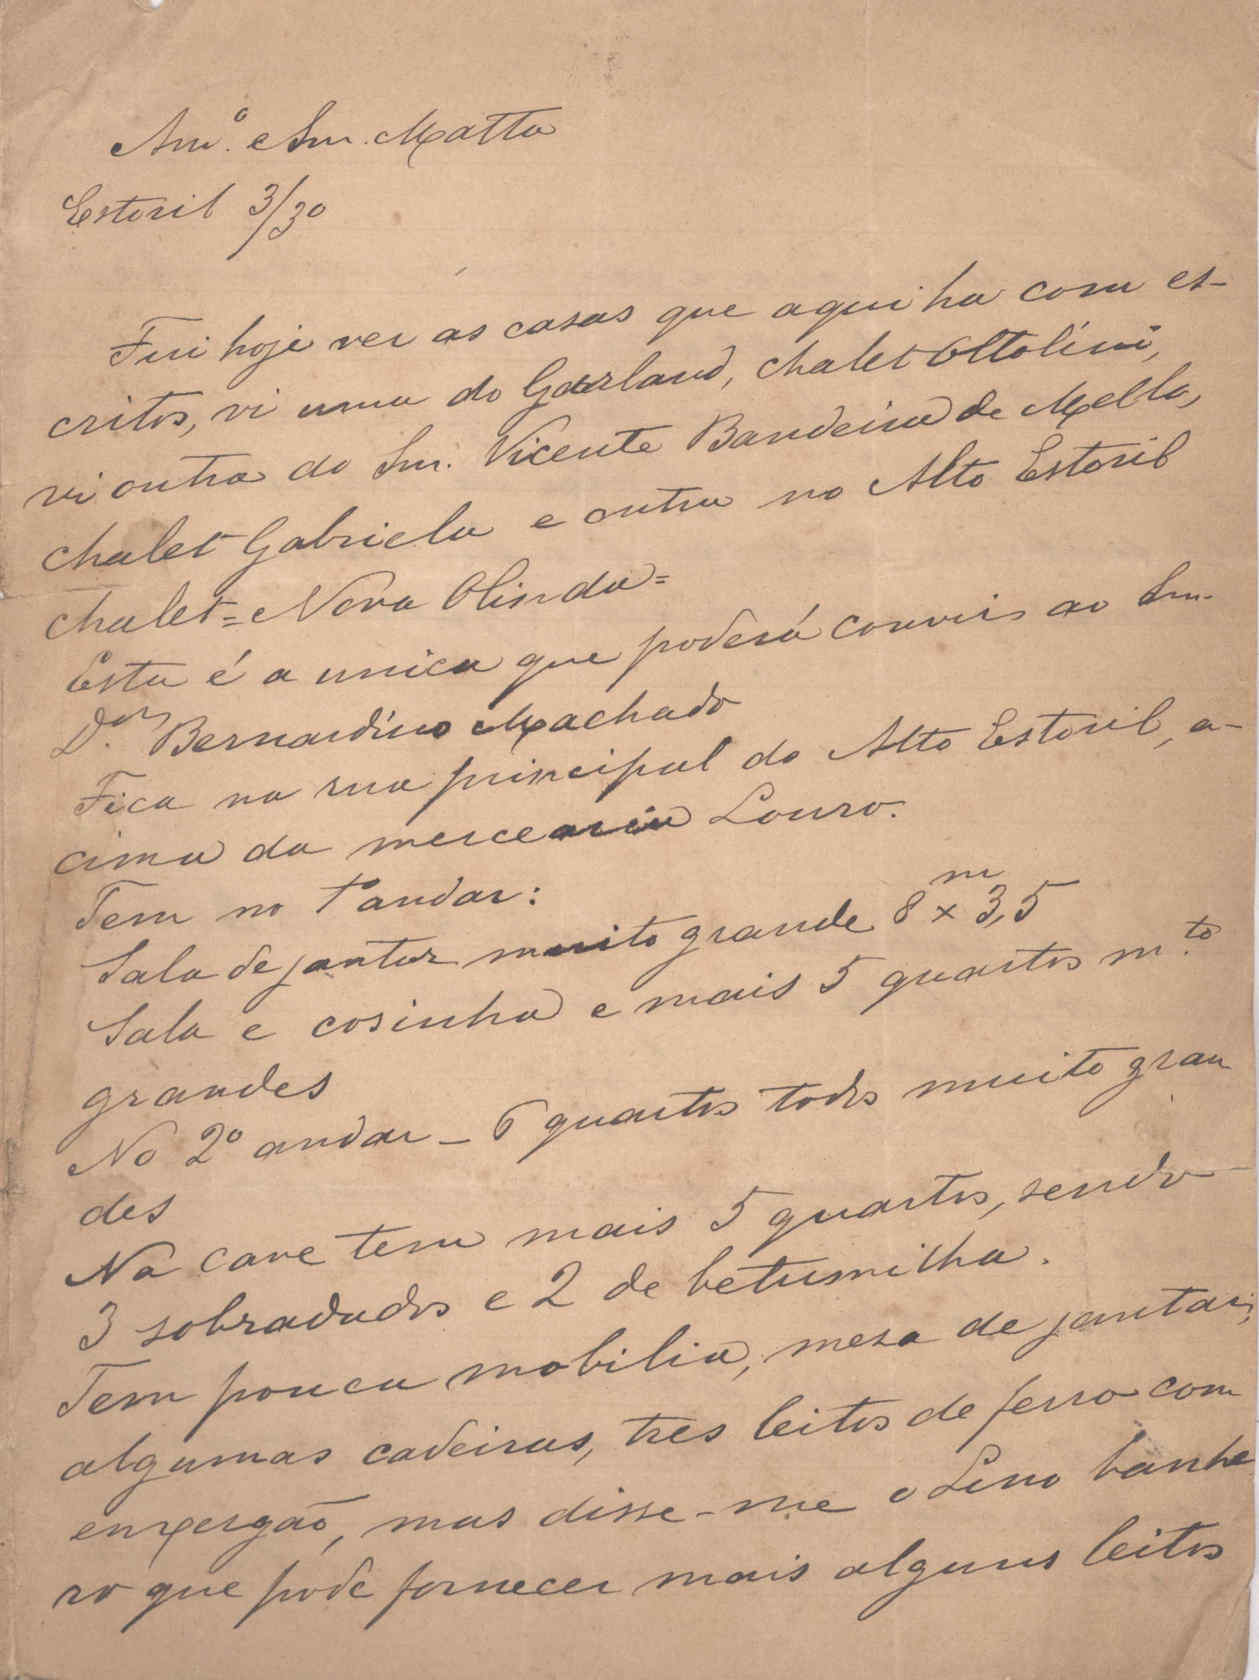 Am.º e Snr. Matta
Estoril 3/30
Fui hoje ver as casas que aqui ha com es-
critos, vi uma do Garland, chalet Ottolini,
vi outra do Snr. Vicente Bandeira de Mello,
chalet Gabriela e outra no Alto Estoril
chalet = Nova Olinda =
Esta é a unica que poderá convir ao Snr.
D.or Bernardino Machado
Fica na rua principal do Alto Estoril, a-
cima da mercearia Louro.
Tem no 1º andar:
Sala de jantar muito grande 8 m x 3,5
Sala e cosinha e mais 5 quartos m.to
grandes
No 2º andar – 6 quartos todos muito gran
des
Na cave tem mais 5 quartos, sendo
3 sobradados e 2 de betumilha.
Tem pouca mobilia, mesa de jantar,
algumas cadeiras, tres leitos de ferro com
enxergão, mas disse-me o Lino banhe
ro que pode fornecer mais alguns leitos